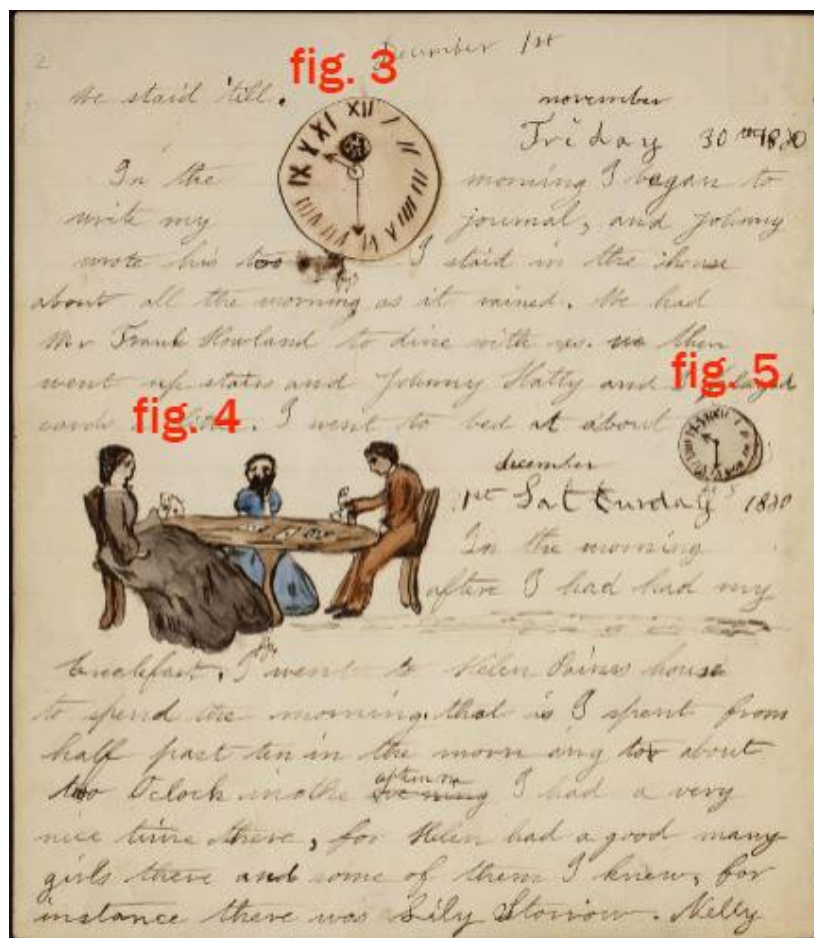 2
December 1st
fig. 3
We staid 'till.
XII I II III IIII V VI VII VIII IX X XI
november
Friday 30th 1880
In the morning I began to
write my journal, and Johnny
wrote his too I staid in the house
about all the morning as it rained. We had
Mr Frank Howland to dine with us. we then
went up stairs and Johnny Hatty and I played
fig. 5
cards I went to bed at about
fig. 4
december
1st Satturday 1880
In the morning
after I had had my
breakfast. I went to Helen Paines house
to spend the morning. that is I spent from
half past ten in the morn ing to about
two Oclock in the afternn evening I had a very
nice time there, for Helen had a good many
girls there and some of them I knew, for
instance there was Lily Storrow. Nelly